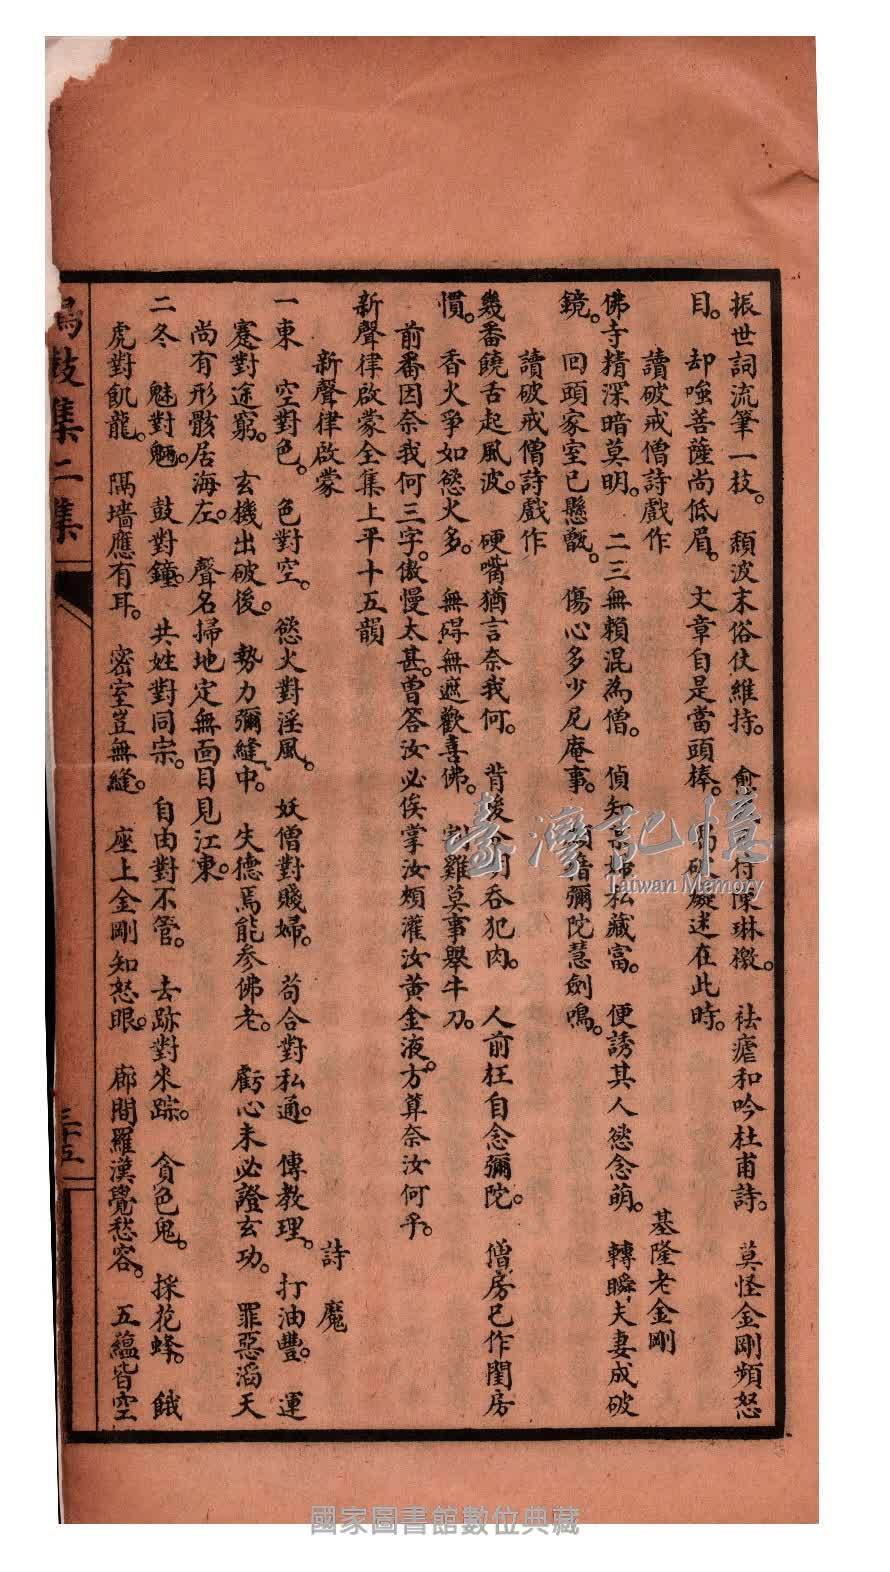 振世詞流筆一枝。頹波末俗仗維持。愈 付陳琳檄。祛瘧和吟杜甫詩。莫怪金剛頻怒
目。却嗤菩薩尚低眉。文章自是當頭棒。 破癡迷在此時。
讀破戒僧詩戲作 基隆老金剛
佛寺精深暗莫明。二三無賴混為僧。偵知 婦私藏富。便誘其人慾念萌。轉瞬夫妻成破
鏡。回頭家室已懸甑。傷心多少尼庵事。 彌陀慧劍鳴。
讀破戒僧詩戲作
幾番饒舌起風波。硬嘴猶言奈我何。背後 吞犯肉。人前枉自念彌陀。僧房已作閨房
慣。香火爭如慾火多。無碍無遮歡喜佛。割雞莫事舉牛刀。
前番因奈我何三字。傲慢太甚。曾答汝必俟掌汝頰灌汝黃金液。方算奈汝何乎。
新聲律啟蒙全集上平十五韻
新聲律啟蒙 詩魔
一東 空對色。色對空。慾火對淫風。妖僧對賤婦。苟合對私通。傳教理。打油豐。運
蹇對途窮。玄機出破後。勢力彌縫中。失德焉能參佛老。虧心未必證玄功。罪惡滔天
尚有形骸居海左。聲名掃地定無面目見江東。
二冬 魅對魎。鼓對鐘。共姓對同宗。自由對不管。去跡對來踪。貪色鬼。採花蜂。餓
虎對飢龍。隔墻應有耳。密室豈無縫。座上金剛知怒眼。廊間羅漢覺愁容。五蘊皆空
鳴鼓集二集
三十五
臺灣記憶
Taiwan Memory
國家圖書館數位典藏